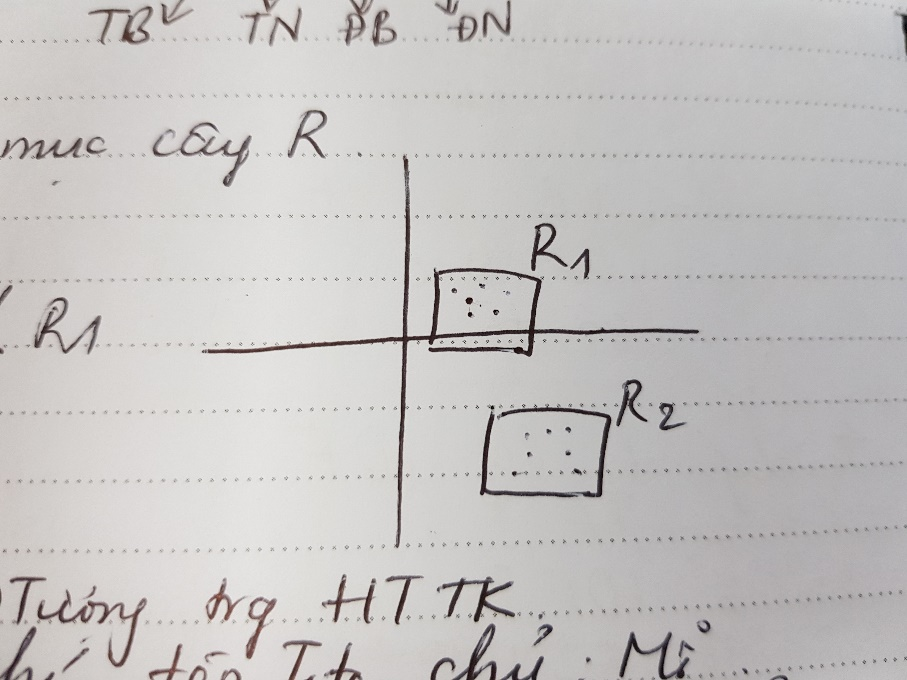 TB TN ĐB ĐN
mục cây R
R1
R1
R2
Tướng trg HTTK
chủ: Mĩ